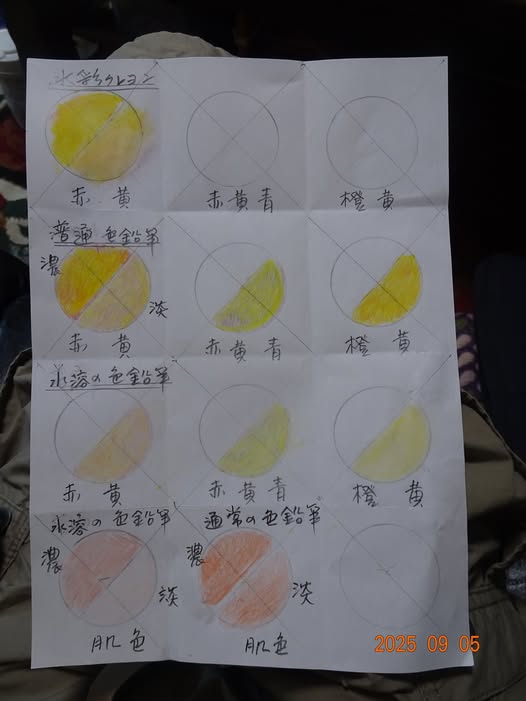 水彩クレヨン
赤 黄
赤黄青
橙黄
普通色鉛筆
濃
淡
赤 黄
赤黄青
橙 黄
水溶の色鉛筆
赤 黄
赤黄青
橙 黄
水溶の色鉛筆
通常の色鉛筆
濃
淡
濃
淡
肌色
肌色
2025 09 05